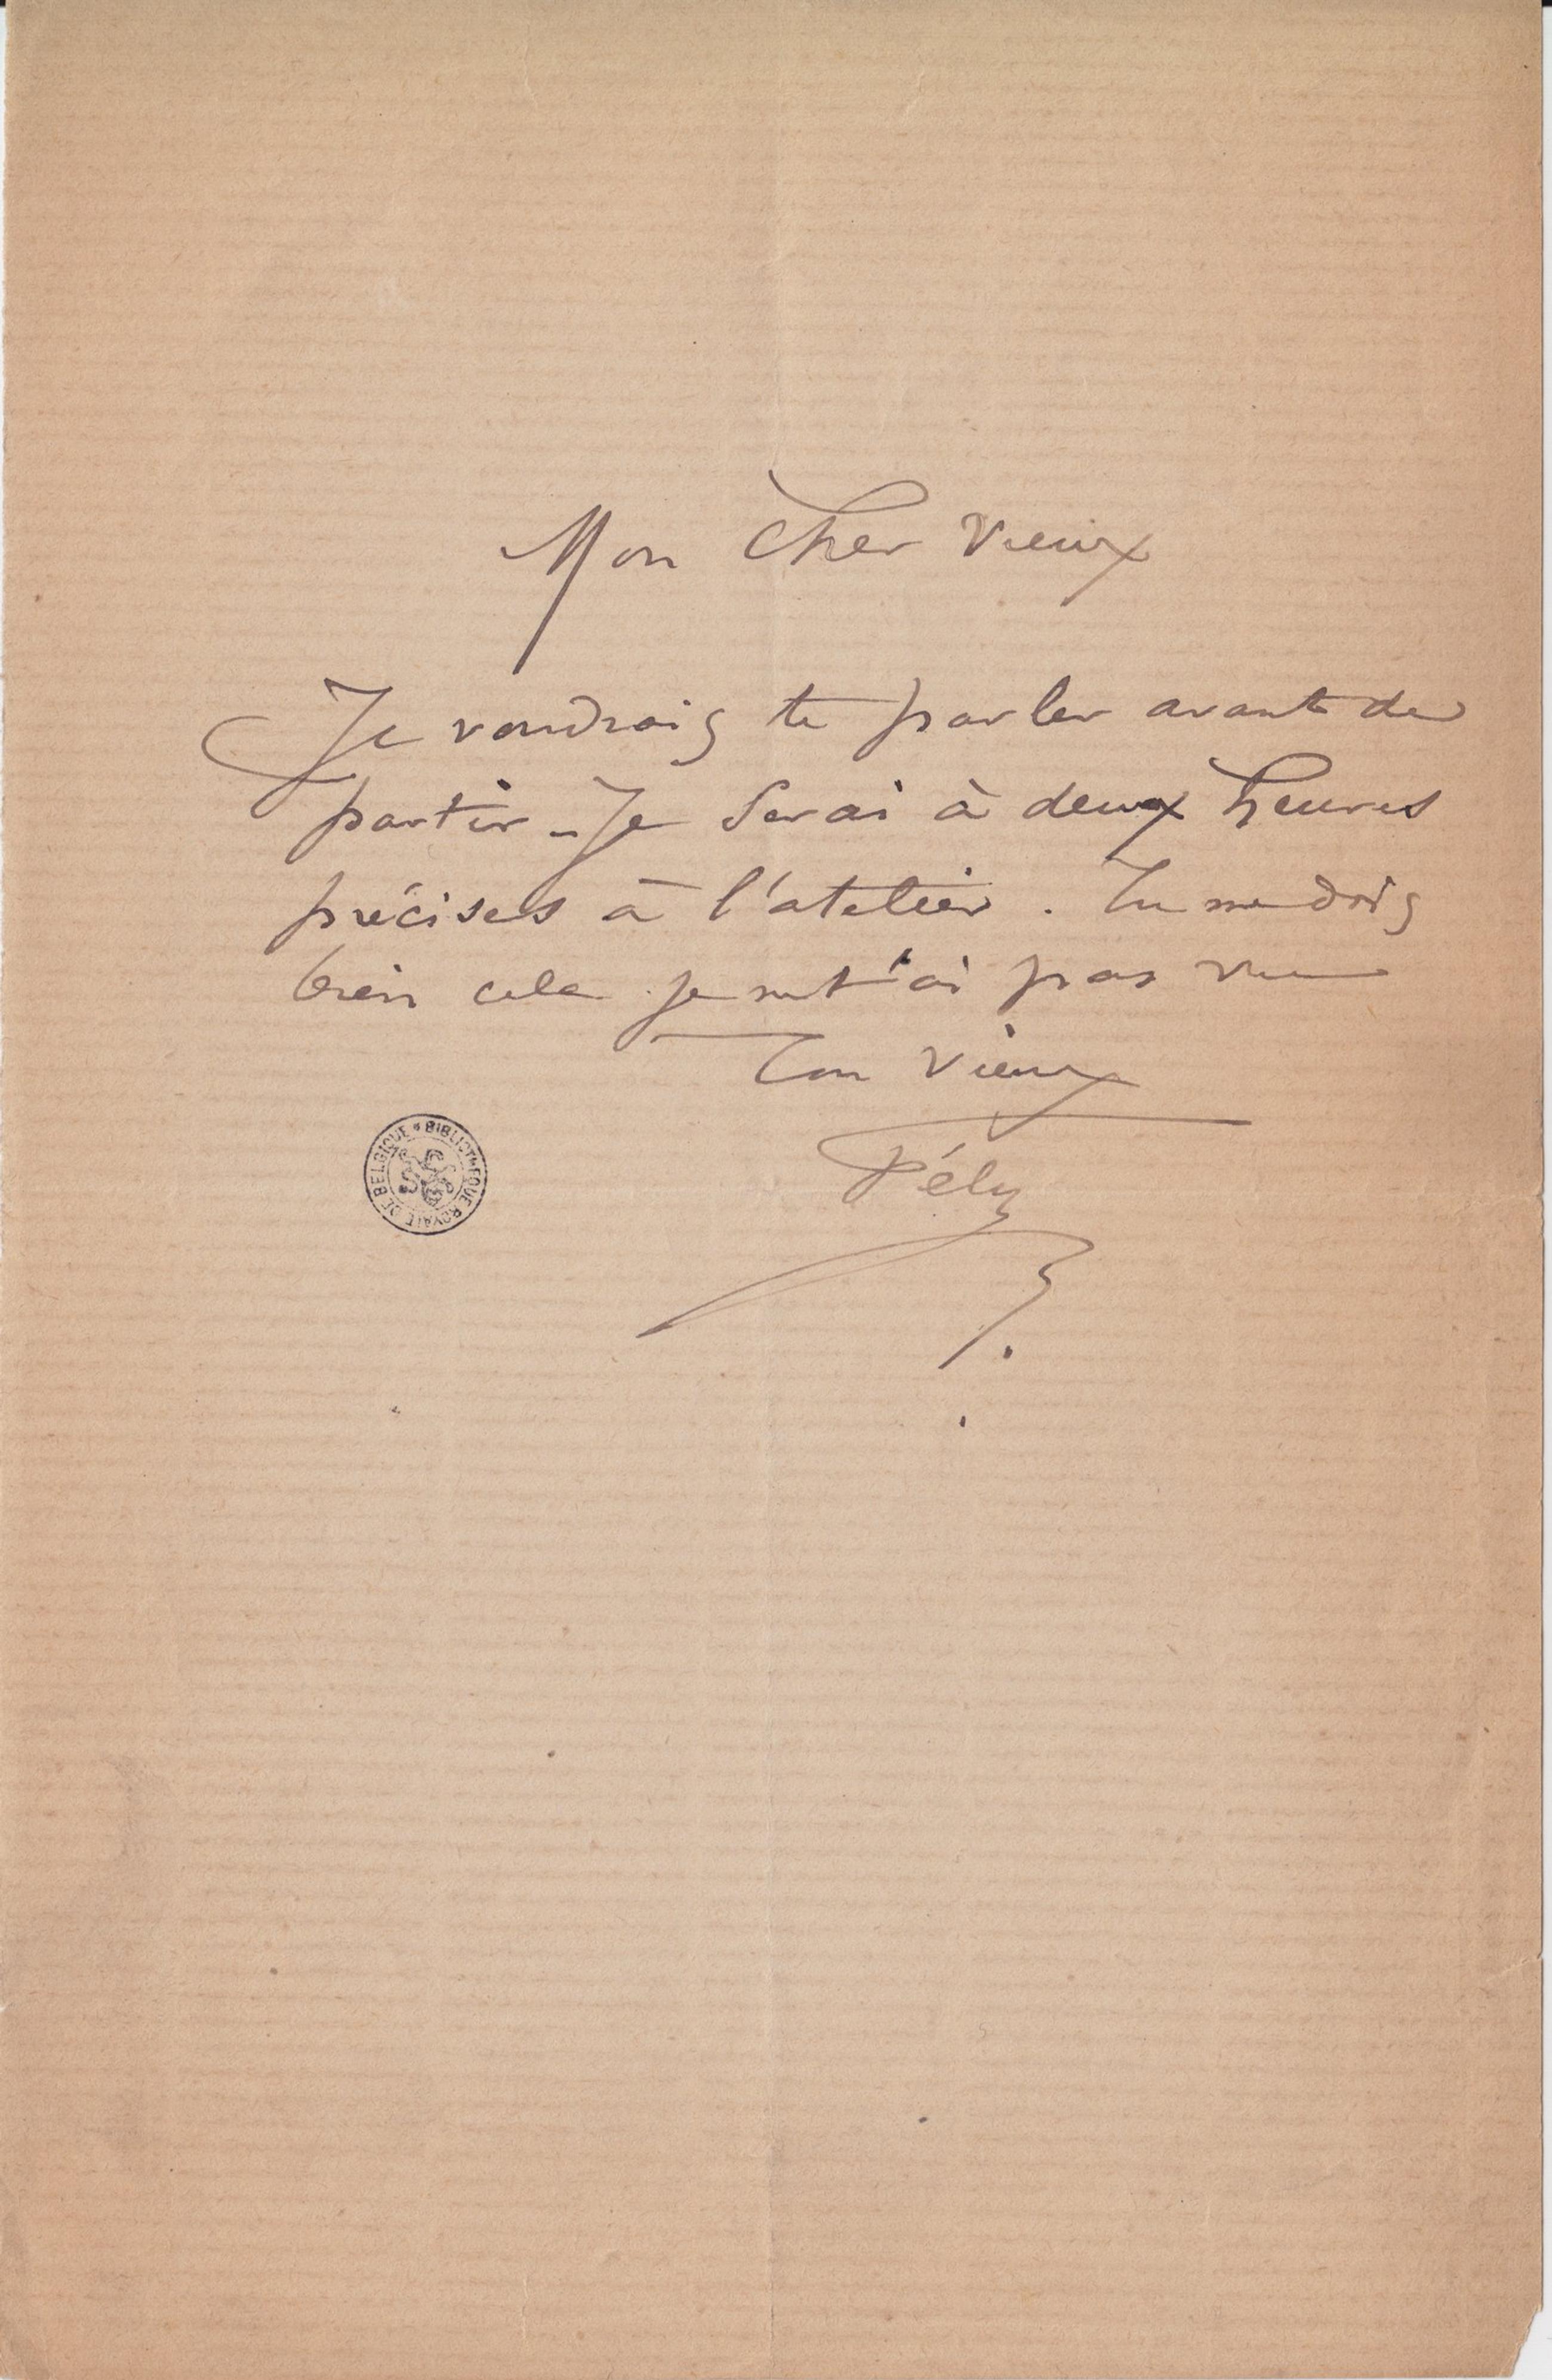 Mon cher vieux
Je voudrais te parler avant de
partir – Je serai à deux heures
précises à l'atelier. Tu me dois
bien cela je ne t'ai pas vu
Ton vieux
Fély
BIBLIOTHEQUE ROYALE DE BELGIQUE *